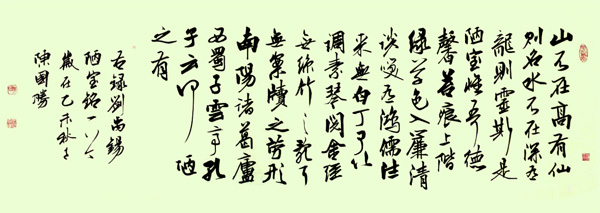 山不在高有仙
则名水不在深有
龍則靈斯是
陋室惟吾德
馨苔痕上階
綠草色入簾清
談笑有鴻儒往
来無白丁可以
調素琴閱金經
無絲竹之亂耳
無案牘之勞形
南陽諸葛廬
西蜀子雲亭孔
子云何陋
之有
右録劉禹錫
陋室銘一首
歲在乙未秋
陳國勝